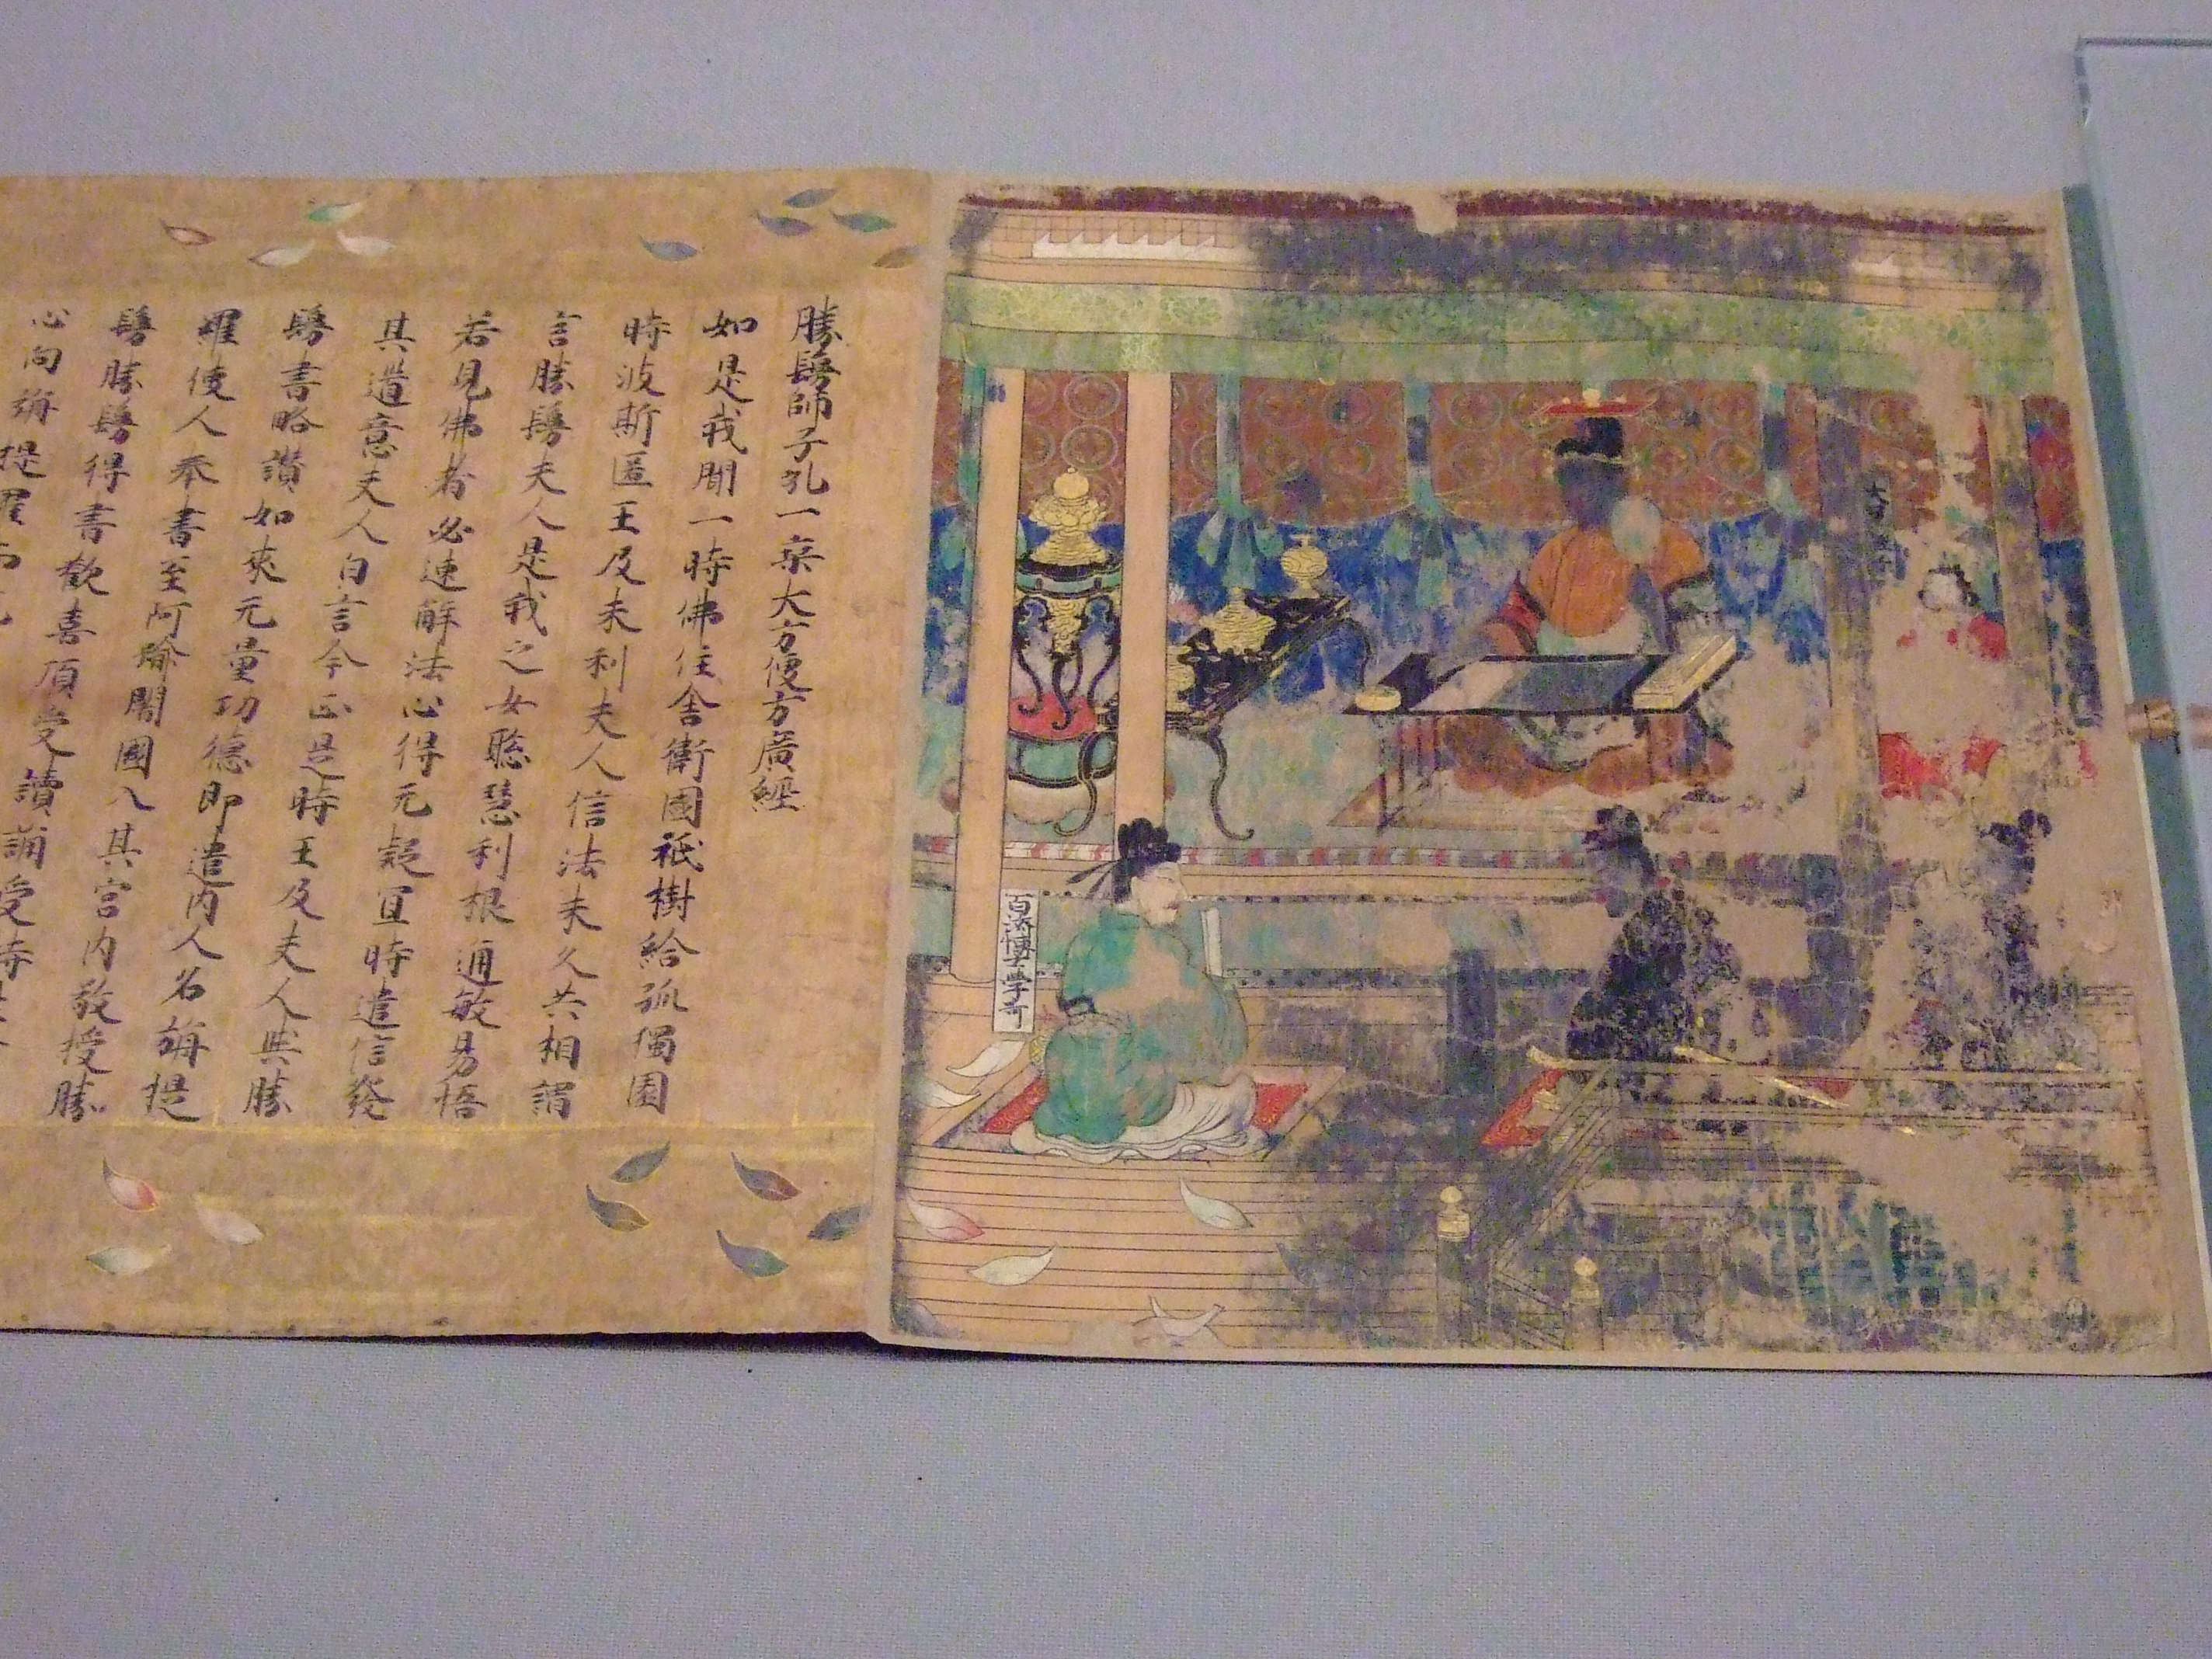 百済博士學哥
勝鬘師子吼一乗大方便方廣經
如是我聞一時佛住舍衛國祇樹給孤獨園
時波斯匿王及末利夫人信法未久共相謂
言勝鬘夫人是我之女聡慧利根通敏易悟
若見佛者必速解法心得无疑宜時遣信發
其道意夫人白言今正是時王及夫人與勝
鬘書略讃如來无量功德即遣内人名旃提
羅使人奉書至阿踰闍國入其宮内敬授勝
鬘勝鬘得書歡喜頂受讀誦受持
心向旃提羅而